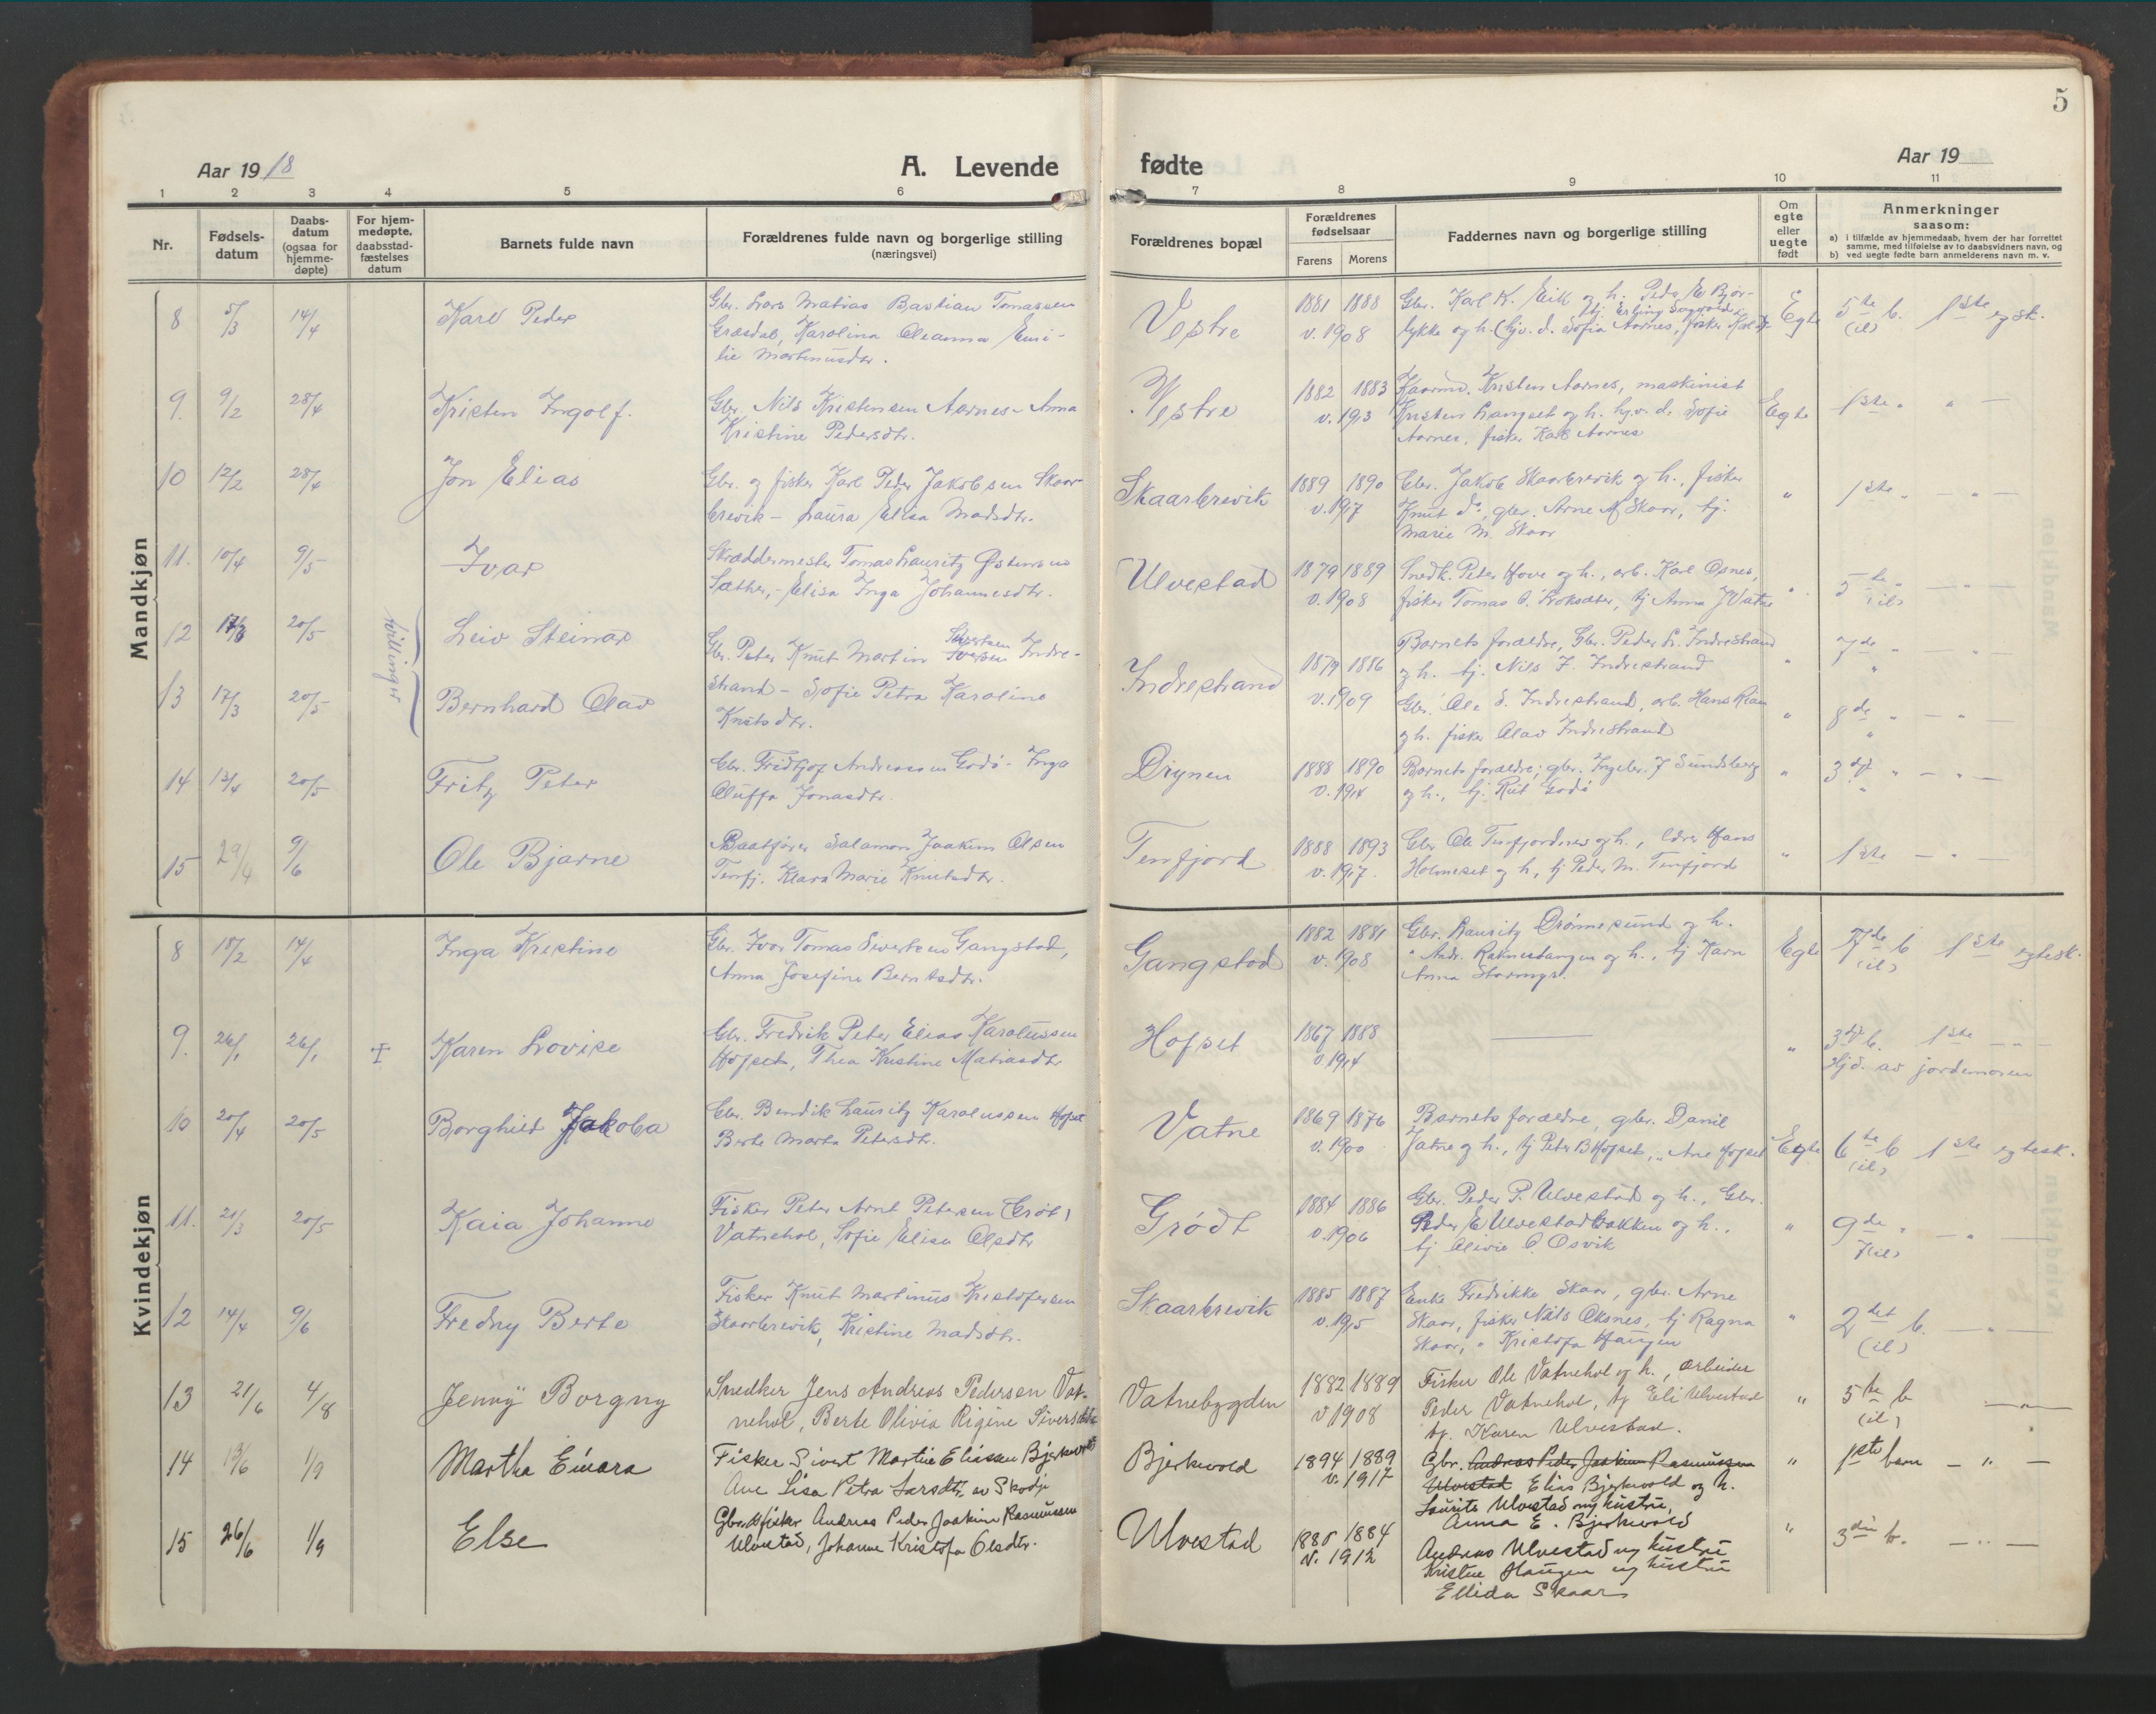 5
Aar 19 18
A. Levende fødte
Aar 19
1 2 3 4 5 6 7 8 9 10 11
Nr.
Fødsels-
datum
Daabs-
datum
(ogsaa for
hjemme-
døpte)
For hjem-
medøpte.
daabsstad-
fæstelses
datum
Barnets fulde navn
Forældrenes fulde navn og borgerlige stilling
(næringsvei)
Forældrenes bopæl
Forældrenes
fødselsaar
Farens Morens
Faddernes navn og borgerlige stilling
Om
egte
eller
uegte
født
Anmerkninger
saasom:
a) i tilfælde av hjemmedaab, hvem der har forrettet
samme, med tilføielse av to daabsvidners navn, og
b) ved uegte fødte barn anmelderens navn m. v.
Mandkjøn
8 5/3 14/4 Karl Peder
Gbr. Lars Matias Bastian Tomassen
Græsdal, Karolina Oleanna Emi-
lie Martinusdtr.
Vestre
1881 1888
v. 1908
Gbr. Karl K. Eik og h. Peder E Bjør-
lykke og h.
Egte 5te b. 1ste egsk.
(il)
9. 9/2 28/4 Kristen Ingolf.
Gbr. Nils Kristensen Aarnes - Anna
Kristine Pedersdtr.
Vestre
1882 1883
v. 1913
Kaarmd. Kristen Aarnes, maskinist
Kristen Langset og h. hj.v. d. Sofie
Aarnes, fisker Karl Aarnes
Egte 1ste " " —
10 12/2 28/4 Jon Elias
Gbr. og fisker Karl Peder Jakobsen Skaar-
brevik - Laura Elisa Madsdtr.
Skaarbrevik
1889 1890
v. 1917
Gbr. Jakob Skaarbrevik og h., fisker
Knut do, gbr. Arne M Skaar, tj.
Marie M. Skaar
" 1ste " — " —
11. 10/4 9/5 Ivar
Skræddermester Tomas Lauritz Østensen
Sæther, - Elisa Inga Johannesdtr.
Ulvestad
1879 1889
v. 1908
Snedk. Peter Hove og h., arb. Karl Osnes,
fisker Tomas O. Kroksæter, tj Anna J Vatne
" 5te " — " —
(il)
tvillinger
12 17/3 20/5 Leiv Steinar
13 17/3 20/5 Bernhard Olav
Gbr. Peter Knut Martin Iversen Sivertsen Indre-
strand - Sofie Petra Karoline
Knutsdtr.
Indrestrand
1879 1886
v. 1909
Barnets forældre, Gbr. Peder L. Indrestrand
og h. tj. Nils F. Indrestrand
" 7de " — " —
Gbr. Ole S. Indrestrand, arb. Hans
og h. fisker Olav Indrestrand
" 8de " — " —
14 13/4 20/5 Fritz Peter
Gbr. Fridtjof Andreassen Godø - Inga
Oluffa Jonasdtr.
Drynen
1888 1890
v. 1914
Barnets forældre; gbr. Ingebr. J Sundsberg
og h., tj. Rut Godø
" 3dje " — " —
15 29/4 9/6 Ole Bjarne
Baatfører Salamon Joakim Olsen
Tenfj. Klara Marie Knutsdtr.
Tenfjord
1888 1893
v. 1917.
Gbr Ole Tenfjordnes og h., lærer Hans
Holmeset og h, tj Peder M. Tenfjord
" 1ste — " —
Kvindekjøn
8 18/2 14/4 Inga Kristine
Gbr. Ivar Tomas Sivertsen Gangstad,
Anna Josefine Berntsdtr.
Gangstad
1882 1881
v. 1908
Gbr. Lauritz Drønnesund og h.
" Andr. Ratnestangen og h., tj Karn
Anna
Egte 7de b 1ste egtesk.
(il)
9. 26/1 26/1 + Karen Lovise
Gbr. Fredrik Peter Elias Karolussen
Hofset, Thea Kristine Matiasdtr
Hofset
1867 1888
v. 1914
—
" 3dje b. 1ste — " —
Hjd. av jordemoren
10 20/4 20/5 Borghild Jakoba
Gbr. Bendik Lauritz Karolussen Hofset
Berte Marta Petersdtr.
Vatne
1869 1876
v. 1900
Barnets forældre, gbr. Daniel
Vatne og h., tj Peter B Hofset, " Ane Hofset
Egte 6te b 1ste egtesk.
(il)
11. 21/3 20/5 Kaia Johanne
Fisker Peter Arnt Petersen (Grøt)
Vatnehol, Sofie Elisa Olsdtr
Grødt
1884 1886
v. 1906
Gbr. Peder P. Ulvestad og h., Gbr.
Peder E Ulvestadbakken og h.,
tj Olivie O. Osvik
" 9de " — " —
7 (il)
12 14/4 9/6 Fredny Berte
Fisker Knut Martinus Kristofersen
Skaarbrevik, Kristine Madsdtr.
Skaarbrevik
1885 1887
v. 1915
Enke Fredrikke Skaar, gbr. Arne
Skaar, fisker Nils Oksnes, tj Ragna
Skaar, " Kristofa Haugen
" 2det b. — " —
(il)
13 21/6 4/8 Jenny Borgny
Snedker Jens Andreas Pedersen Vat-
nehol, Berte Olivia Rigine Siversdtr
Vatnebygden
1882 1889
v 1908
Fisker Ole Vatnehol og h., arbeider
Peder Vatnehol, tj Eli Ulvestad
tj. Karen Ulvestad.
" 5te b — " —
(il)
14 13/6 1/9 Martha Einara
Fisker Sivert Martin Eliassen Bjerkevold
Ane Lisa Petra Larsdtr. av Skodje
Bjerkevold
1894 1889
v. 1917
Gbr. Andreas Peder Joakim Rasmussen
Ulvestad Elias Bjerkevold og h.
Laurits Ulvestad og hustru,
Anna E. Bjerkevold
" 1ste barn — " —
15 26/6 1/9 Else
Gbr. & fisker Andreas Peder Joakim Rasmussen
Ulvestad, Johanne Kristofa Olsdtr.
Ulvestad
1885 1884
v. 1912
Andreas Ulvestad og hustru
Kristine Haugen og hustru
Ellida Skaar
" 3die b. — " —